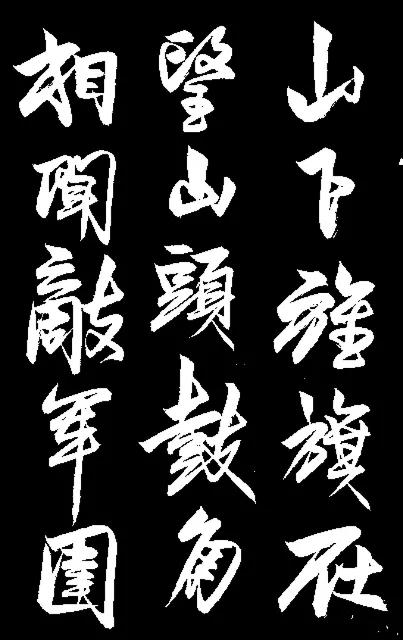 山下旌旗在
望山頭鼓角
相聞敵軍圍